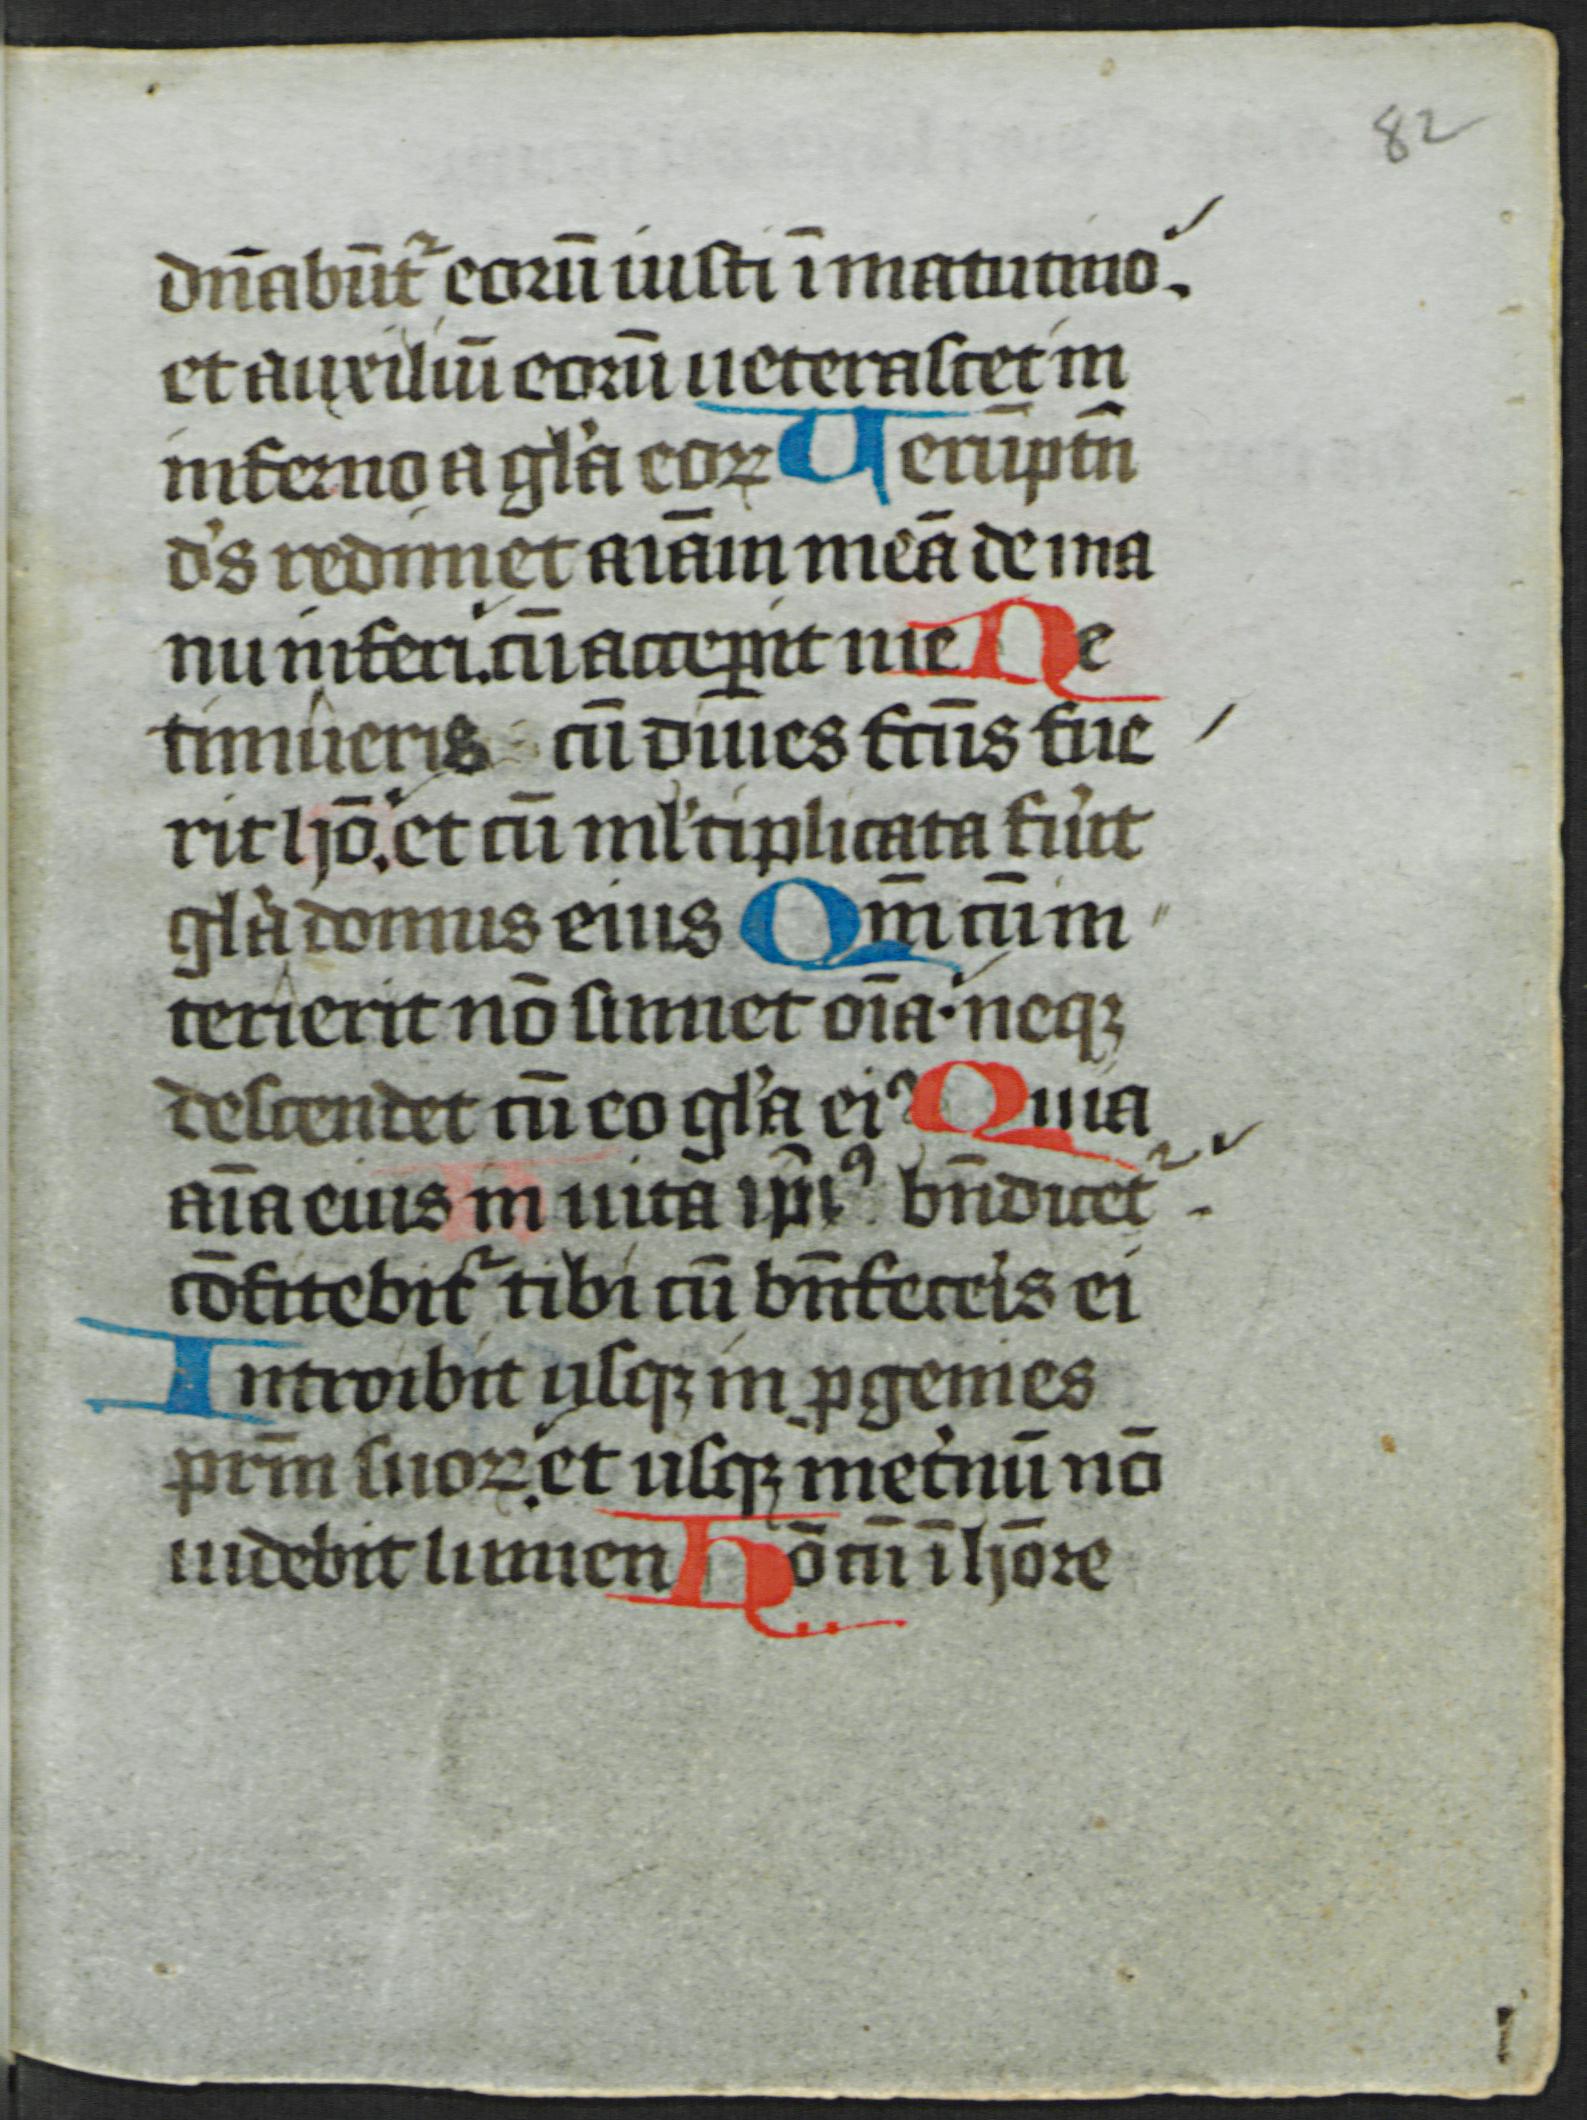 82
dn̄abūt᷑ eorū iusti ī matutino.
et auxiliū eorū ueterascet in
inferno a gl'a eoꝝ Uerūptn̄
d's redimet aīam meā de ma
nu inferi. cū acceꝑit me Ne
timueris cū diues fcūs fue
rit hō. et cū ml'tiplicata fu'it
gl'a domus eius Qm̄ cū in
terierit nō sumet oīa. neqꝫ
descendet cū eo gl'a eiꝰ Quia
aīa eius in uitā ip̄iꝰ bn̄dicet᷑.
cōfitebit᷑ tibi cū bn̄fece'is ei
Introibit usqꝫ in ꝓgenies
prm̄ suoꝝ. et usqꝫ inet'nū nō
uidebit lumen Hō cū ī hōre